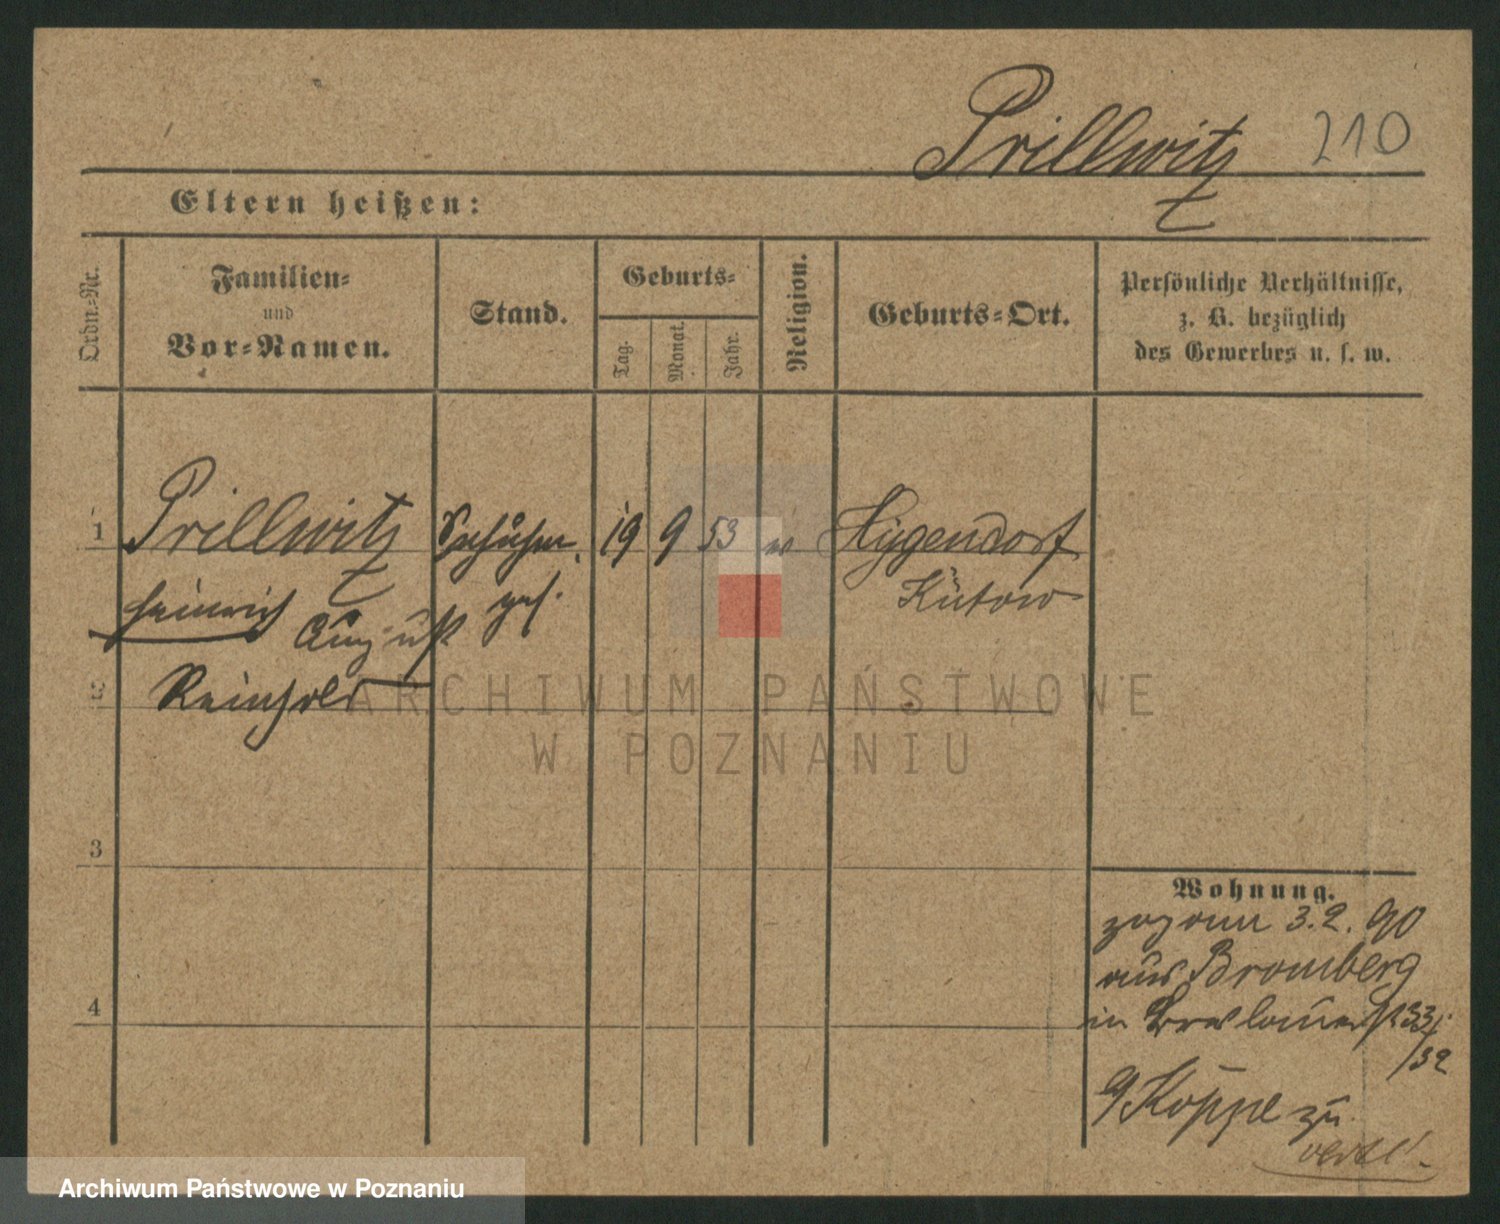 Prillwitz 210
Eltern heißen:
Ordn.-Nr.
Familien-
und
Vor-Namen.
Stand.
Geburts-
Tag.
Monat.
Jahr.
Religion.
Geburts-Ort.
Persönliche Verhältnisse,
z. B. bezüglich
des Gewerbes u. s. w.
1 Prillwitz Schuhm. 19 9 53 Hygendorf
ges. Kütow
Heinrich August
2 Reinhold
ARCHIWUM PAŃSTWOWE
W POZNANIU
3
Wohnung.
zog am 3.2.90
aus Bromberg
4
in Breslauerst 33/
/32
Koppe zu
Archiwum Państwowe w Poznaniu